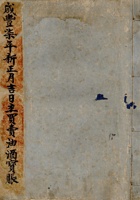 咸豐柒年新正月吉日立買賣油酒寶賬